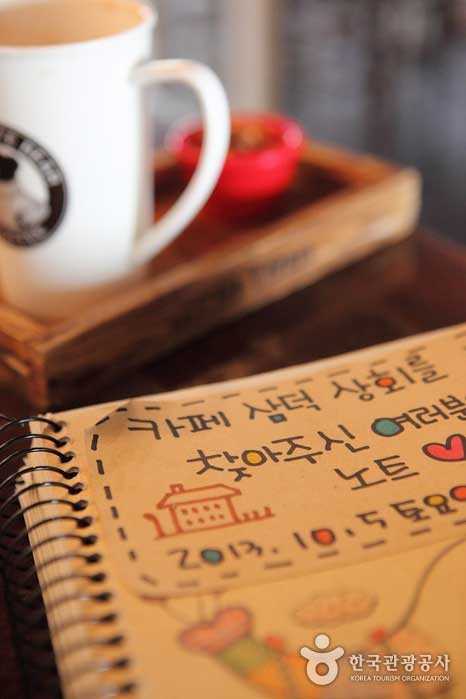 카페 삼덕 상회를
찾아주신 여러분
노트
2013. 10. 5 토요
한국관광공사
KOREA TOURISM ORGANIZATION